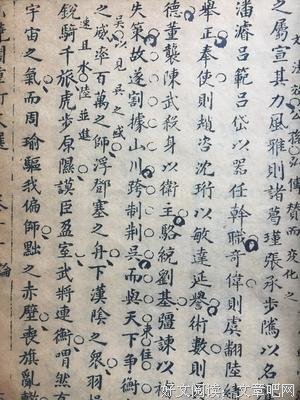 文法效公孫弘傳贊而變化之
之屬宣其力風雅則諸葛瑾張承步騭以名
潘濬呂範呂岱以器任幹職奇偉則虞翻陸績
舉正奉使則趙咨沈珩以敏達延譽術數則
德董襲陳武殺身以衛主駱統劉基彊諫以
失策故遂割據山川跨制荊吳而與天下爭衡
吳以見吳之盛
之威率百萬之師浮鄧塞之舟下漢陰之衆羽
速且水陸並進
銳騎千旅虎步原隰謨臣盈室武將連衡喟然有
宇宙之氣而周瑜驅我偏師黜之赤壁喪旗亂轍
好文阅读 - 文章吧网